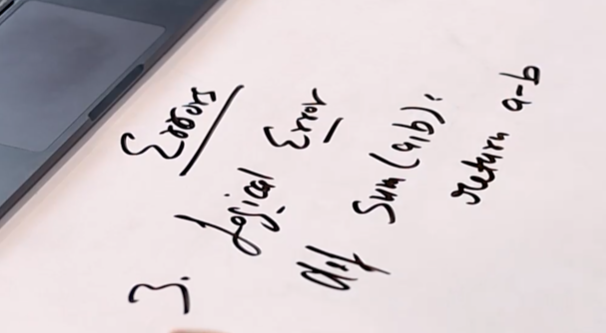 Errors
3. Logical Error
def Sum(a,b):
return a-b